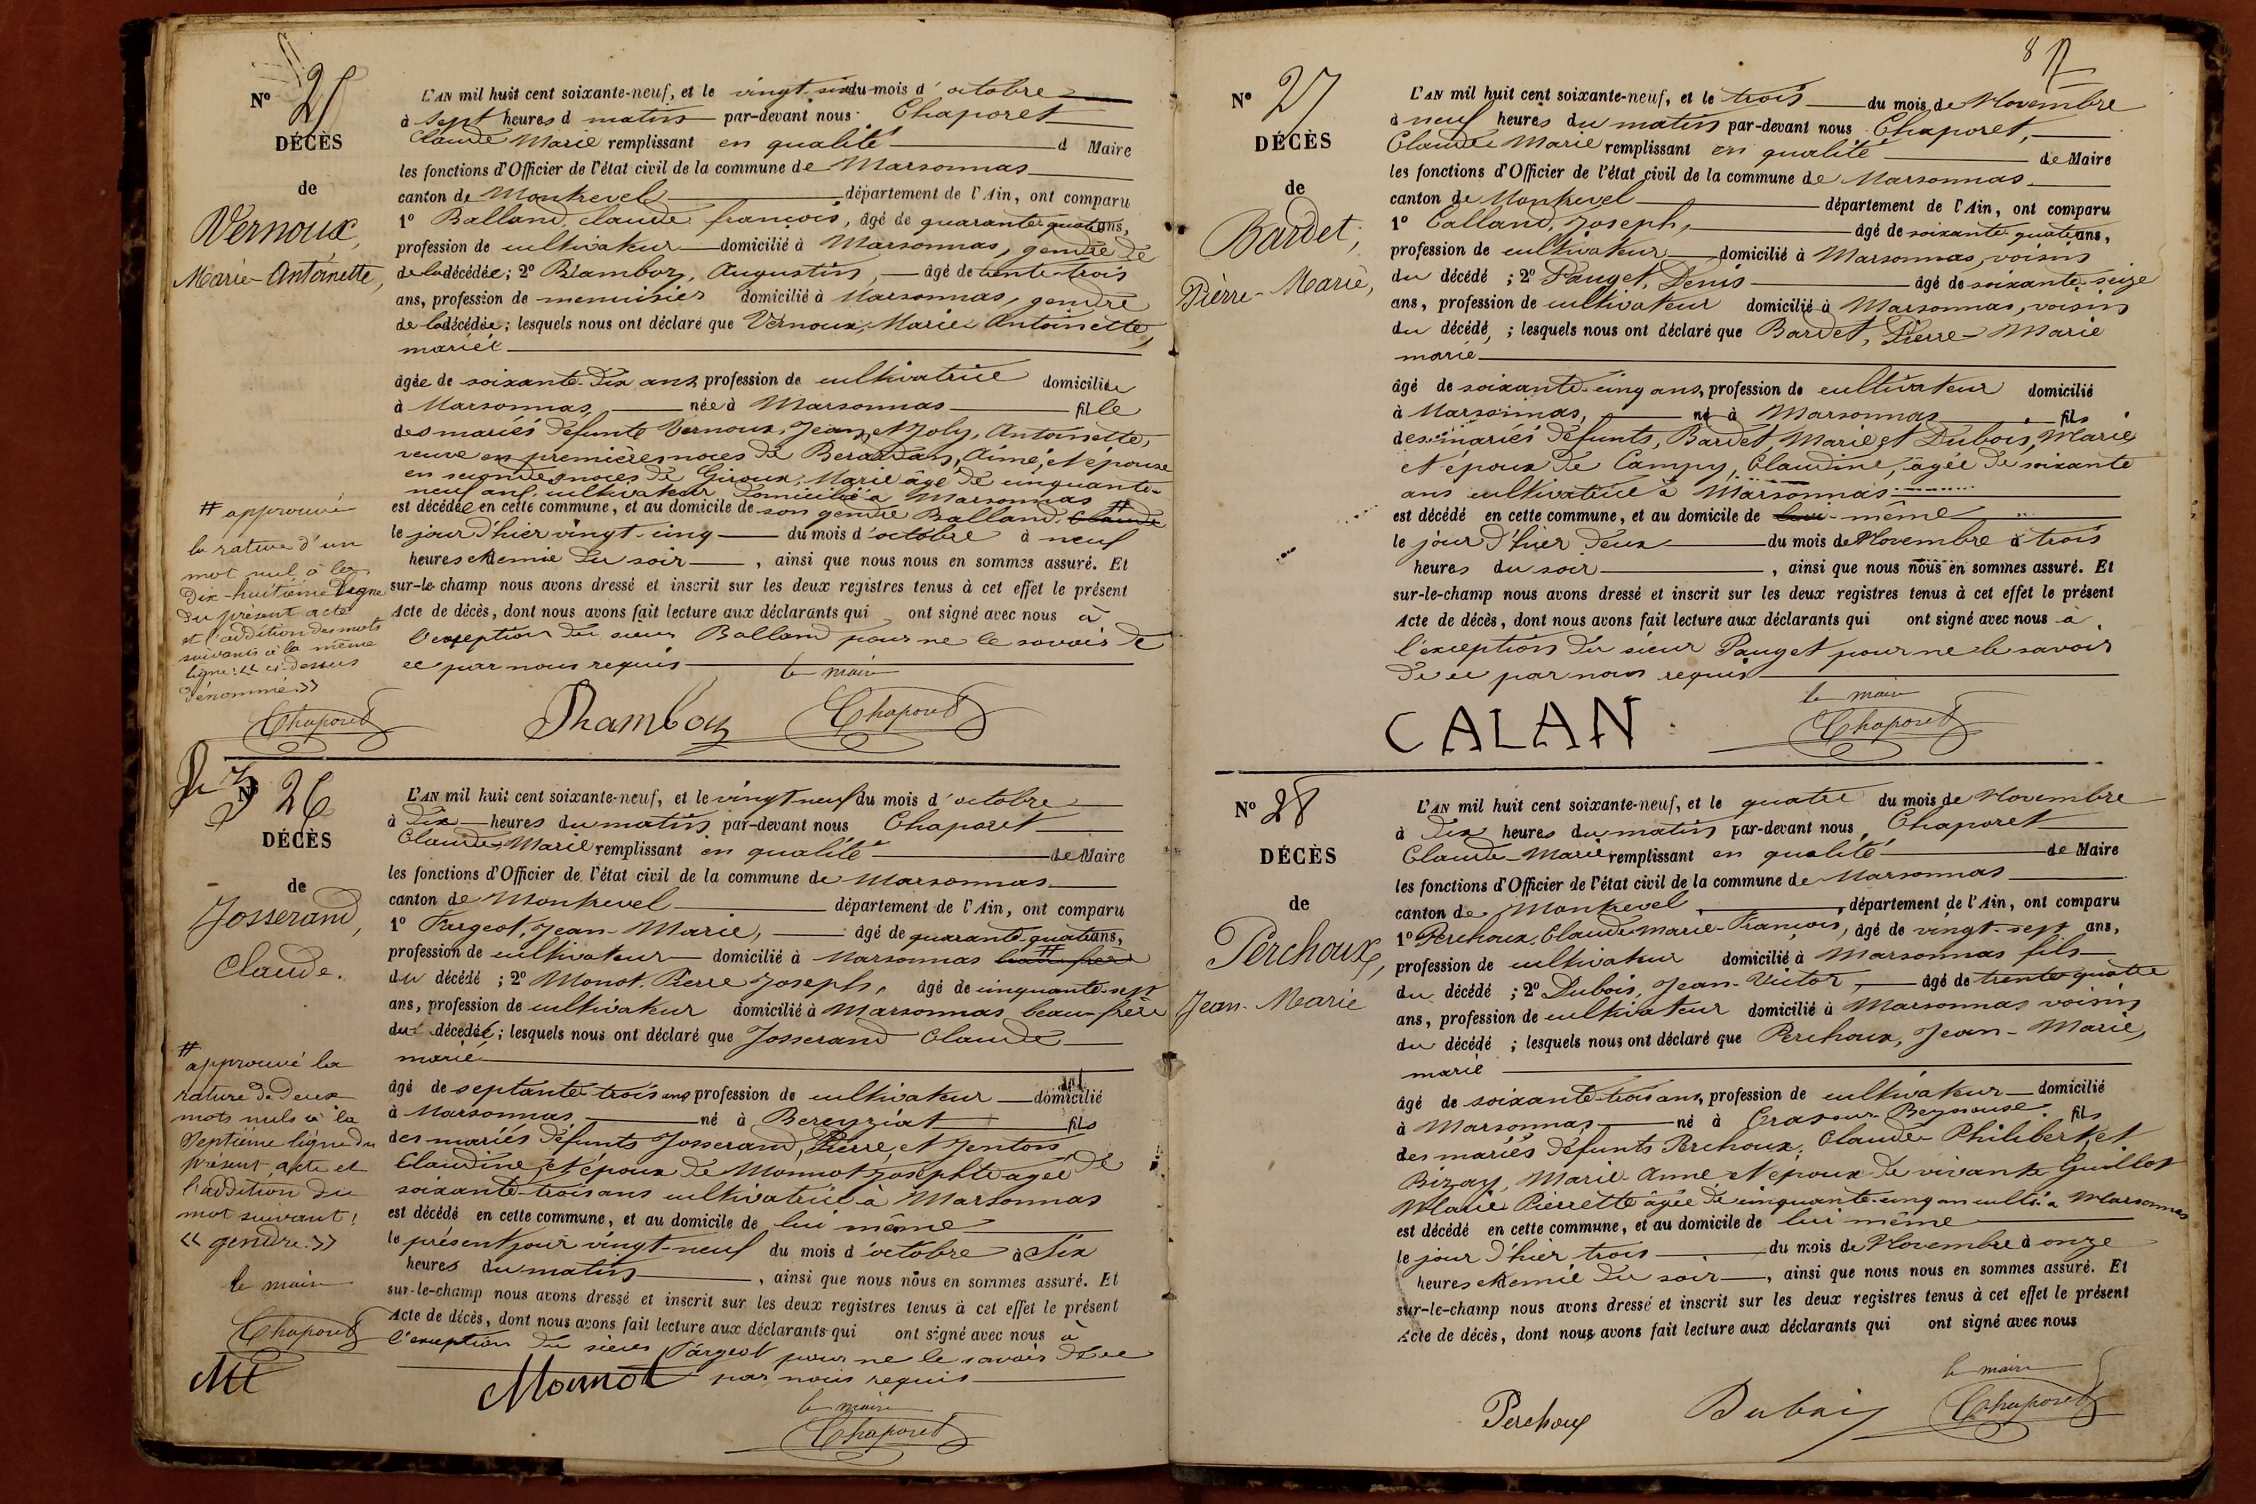 N° 25
DÉCÈS
de
Vernoux,
Marie-Antoinette,
L'AN mil huit cent soixante-neuf, et le vingt-six du mois d'octobre
à sept heures d matin par-devant nous Chaporet
Claude Marie remplissant en qualité d Maire
les fonctions d'Officier de l'état civil de la commune de Marsonnas
canton de Montrevel département de l'Ain, ont comparu
1° Balland, Claude françois, âgé de quarante-quatre ans,
profession de cultivateur domicilié à Marsonnas, gendre de
de la décédée; 2° Augustin, âgé de trente-trois
ans, profession de menuisier domicilié à Marsonnas, gendre
de la décédée; lesquels nous ont déclaré que Vernoux, Marie Antoinette,
mariée
âgée de soixante-dix ans, profession de cultivatrice domiciliée
à Marsonnas, née à Marsonnas fille
des mariés défunts Vernoux, Jean, et Joly, Antoinette,
veuve en premières noces de Aimé, et épouse
en secondes noces de Giroux, Marie âgé de cinquante-
neuf ans, cultivateur domicilié à Marsonnas
est décédée en cette commune, et au domicile de son gendre Balland, # Claude
le jour d'hier vingt-cinq du mois d'octobre à neuf
heures et demie du soir, ainsi que nous nous en sommes assuré. Et
sur-le-champ nous avons dressé et inscrit sur les deux registres tenus à cet effet le présent
Acte de décès, dont nous avons fait lecture aux déclarants qui ont signé avec nous à
l'exception du sieur Balland pour ne le savoir de
ce par nous requis
le maire
Chaporet
# approuvé
la rature d'un
mot nul à la
dix-huitième ligne
du présent acte
et l'addition des mots
suivants à la même
ligne: « ci-dessus
dénommé. »
Chaporet
N° 26
DÉCÈS
de
Josserand,
Claude.
L'AN mil huit cent soixante-neuf, et le vingt-neuf du mois d'octobre
à dix heures du matin par-devant nous Chaporet
Claude-Marie remplissant en qualité de Maire
les fonctions d'Officier de l'état civil de la commune de Marsonnas
canton de Montrevel département de l'Ain, ont comparu
1° Pargeot, Jean-Marie, âgé de quarante-quatre ans,
profession de cultivateur domicilié à Marsonnas # beau-frère
du décédé; 2° Monot, Pierre Joseph, âgé de cinquante-sept
ans, profession de cultivateur domicilié à Marsonnas beau-frère
du décédé; lesquels nous ont déclaré que Josserand Claude
marié
âgé de septante-trois ans profession de cultivateur domicilié
à Marsonnas né à Béreyziat fils
des mariés défunts Josserand, Pierre, et Jenton
Claudine, et époux de Monnot Josephte agée de
soixante-trois ans cultivatrice à Marsonnas
est décédé en cette commune, et au domicile de lui même
le présent jour vingt-neuf du mois d'octobre à six
heures du matin, ainsi que nous nous en sommes assuré. Et
sur-le-champ nous avons dressé et inscrit sur les deux registres tenus à cet effet le présent
Acte de décès, dont nous avons fait lecture aux déclarants qui ont signé avec nous à
l'exception du sieur Pargeot pour ne le savoir de ce
Monnot par nous requis
le maire
Chaporet
# approuvé la
rature de deux
mots nuls à la
septième ligne du
présent acte et
l'addition du
mot suivant:
« gendre. »
le maire
Chaporet
N° 27
DÉCÈS
de
Bardet,
Pierre-Marie,
L'AN mil huit cent soixante-neuf, et le trois du mois de Novembre
à neuf heures du matin par-devant nous Chaporet,
Claude Marie remplissant en qualité de Maire
les fonctions d'Officier de l'état civil de la commune de Marsonnas
canton de Montrevel département de l'Ain, ont comparu
1° Calland, Joseph, âgé de soixante-quatre ans,
profession de cultivateur domicilié à Marsonnas, voisin
du décédé; 2° Pauget, Denis âgé de soixante-seize
ans, profession de cultivateur domicilié à Marsonnas, voisin
du décédé; lesquels nous ont déclaré que Bardet, Pierre-Marie
marié
âgé de soixante-cinq ans, profession de cultivateur domicilié
à Marsonnas, né à Marsonnas fils
des mariés défunts, Bardet, Marie et Dubois, Marie
et époux de Campy, Claudine, âgée de soixante
ans cultivatrice à Marsonnas
est décédé en cette commune, et au domicile de lui-même
le jour d'hier deux du mois de Novembre à trois
heures du soir, ainsi que nous nous en sommes assuré. Et
sur-le-champ nous avons dressé et inscrit sur les deux registres tenus à cet effet le présent
Acte de décès, dont nous avons fait lecture aux déclarants qui ont signé avec nous à
l'exception du sieur Pauget pour ne le savoir
de ce par nous requis
le maire
CALAN Chaporet
N° 28
DÉCÈS
de
Perchoux,
Jean-Marie
L'AN mil huit cent soixante-neuf, et le quatre du mois de Novembre
à dix heures du matin par-devant nous, Chaporet
Claude-Marie remplissant en qualité de Maire
les fonctions d'Officier de l'état civil de la commune de Marsonnas
canton de Montrevel, département de l'Ain, ont comparu
1° Perchoux, Claude-Marie-François, âgé de vingt-sept ans,
profession de cultivateur domicilié à Marsonnas fils
du décédé; 2° Dubois, Jean-Victor, âgé de trente-quatre
ans, profession de cultivateur domicilié à Marsonnas voisin
du décédé; lesquels nous ont déclaré que Perchoux, Jean-Marie,
marié
âgé de soixante-trois ans, profession de cultivateur domicilié
à Marsonnas, né à Cras-sur-Reyssouze, fils
des mariés défunts Perchoux, Claude-Philibert, et
Bizay, Marie-Anne, et époux de vivante Guillot
Marie Pierrette âgée de cinquante-cinq ans cult. à Marsonnas
est décédé en cette commune, et au domicile de lui même
le jour d'hier trois du mois de Novembre à onze
heures et demie du soir, ainsi que nous nous en sommes assuré. Et
sur-le-champ nous avons dressé et inscrit sur les deux registres tenus à cet effet le présent
Acte de décès, dont nous avons fait lecture aux déclarants qui ont signé avec nous
le maire
Perchoux Dubois Chaporet